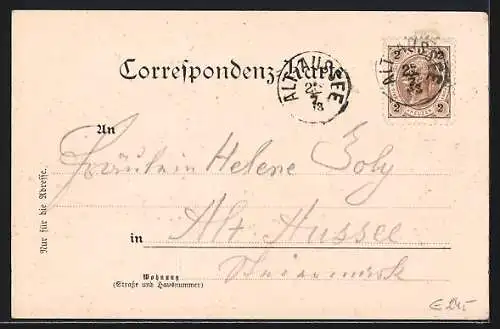 Correspondenz-Karte
ALT AUSSEE
2 2
ALT AUSSEE
2 2
An
Fräulein Helene
in Alt Aussee
Steiermark
Wohnung
(Straße und Hausnummer)
Nur für die Adresse.
€ 24,-